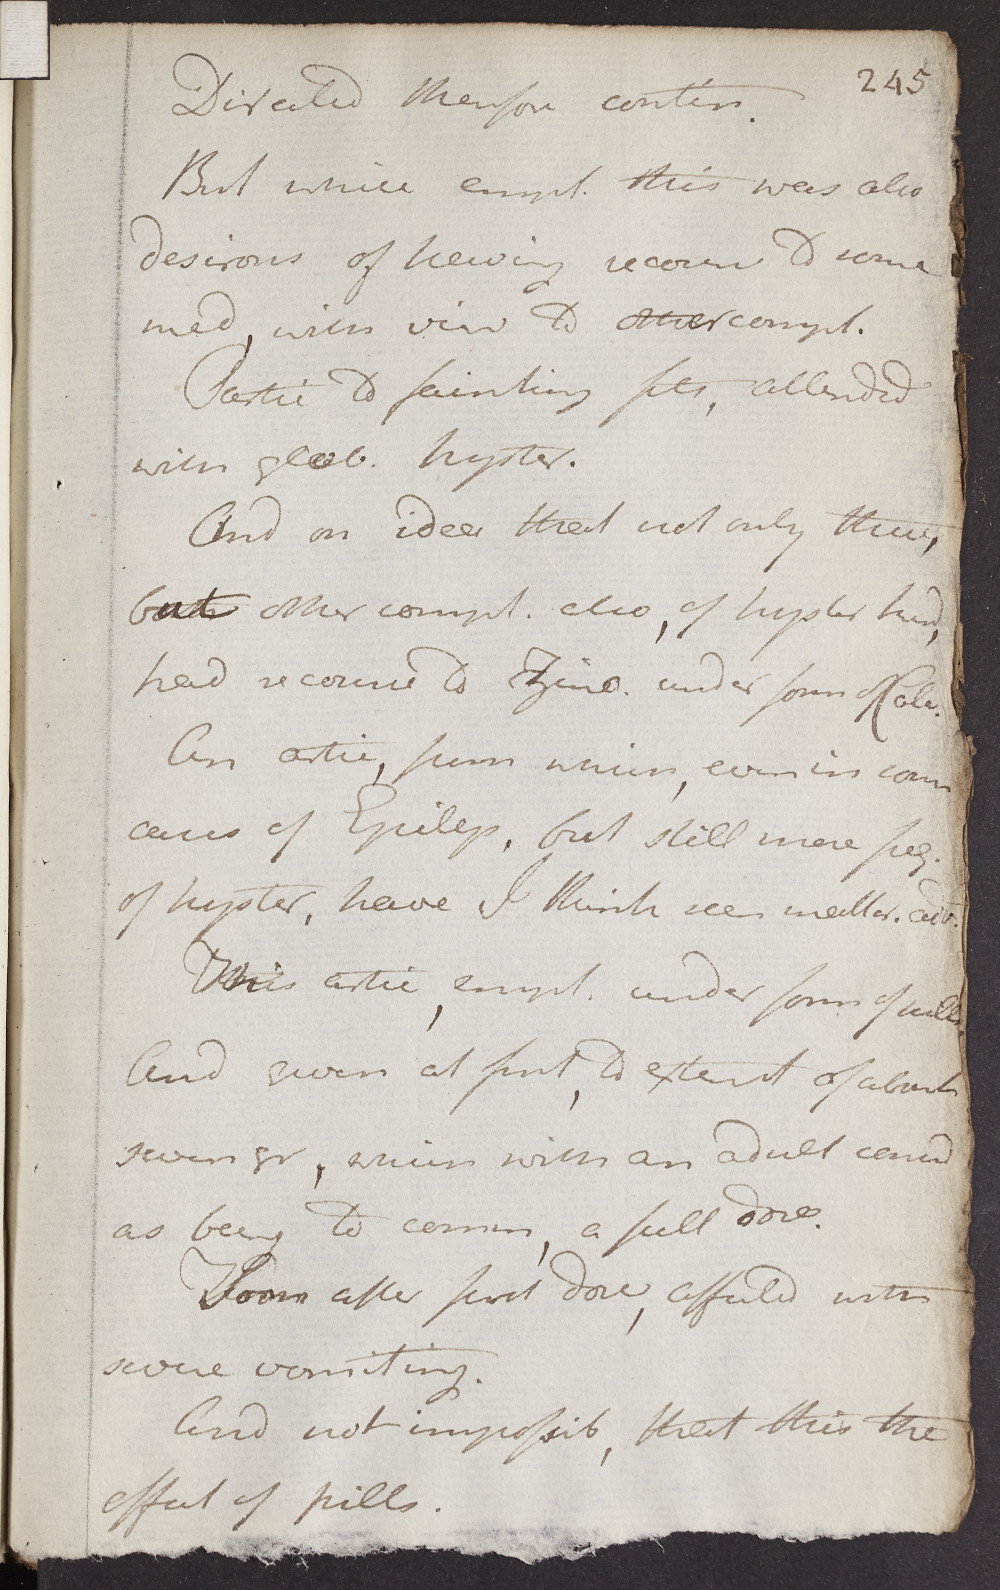 245
Directed therefore contin.
But while empl. this was also
desirous of having recourse to some
med, with view to other compl.
Partic to fainting fits, attended
with glob. hyster.
And on idea that not only these,
but other compl. also, of hyster kind,
had recourse to Zinc. under form of Calx.
An artic, from which, even in some
cases of Epilep, but still more freq.
of hyster, have I think seen matter. adv.
This artic, empl. under form of pills
And given at first, to extent of about
seven gr, which with an adult consid
as being to comm, a full dose.
Soon after first dose, affected with
severe vomiting.
And not impossib, that this the
effect of pills.